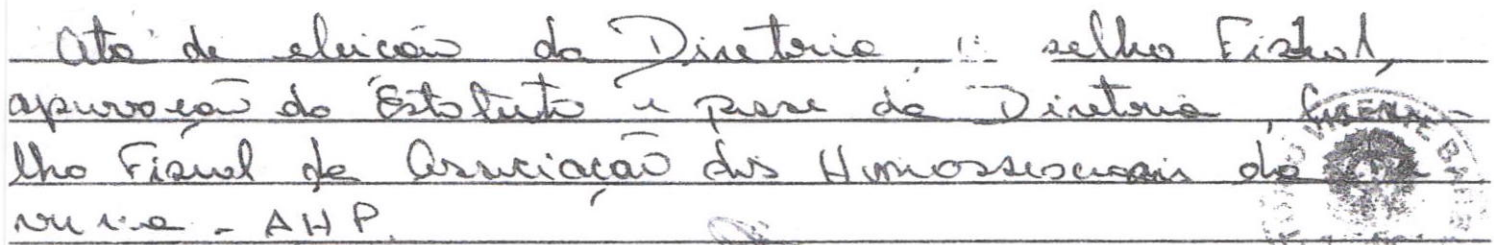 Ata de eleição da Diretoria selho Fiscal,
apuração do Estatuto e posse da Diretoria, Conse-
lho Fiscal da Associação dos Homossexuais do
- AHP.